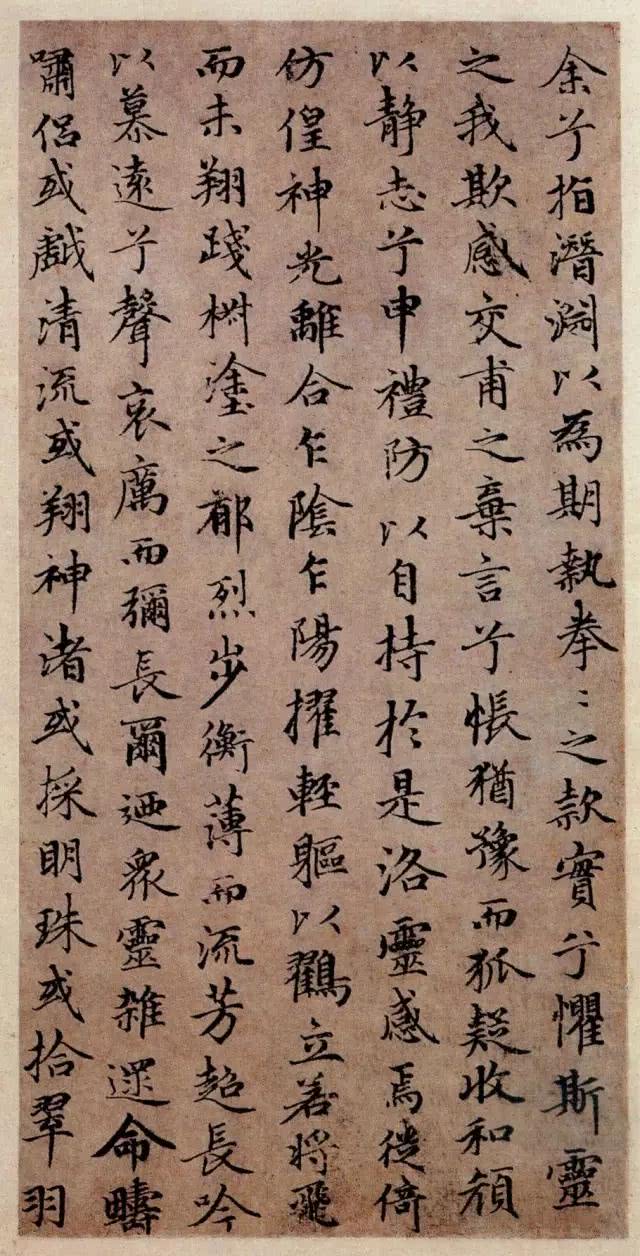 余兮指潛淵以為期執拳〻之款實兮懼斯靈
之我欺感交甫之棄言兮悵猶豫而狐疑收和顏
以静志兮申禮防以自持於是洛靈感焉徙倚
仿偟神光離合乍陰乍陽擢輕軀以鶴立若將飛
而未翔踐椒塗之郁烈步衡薄而流芳超長吟
以慕遠兮聲哀厲而彌長爾迺衆靈雜遝命疇
嘯侶或戲清流或翔神渚或採明珠或拾翠羽